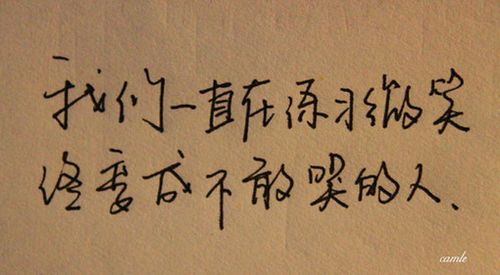 我们一直在练习微笑
终变成不敢哭的人.
camle